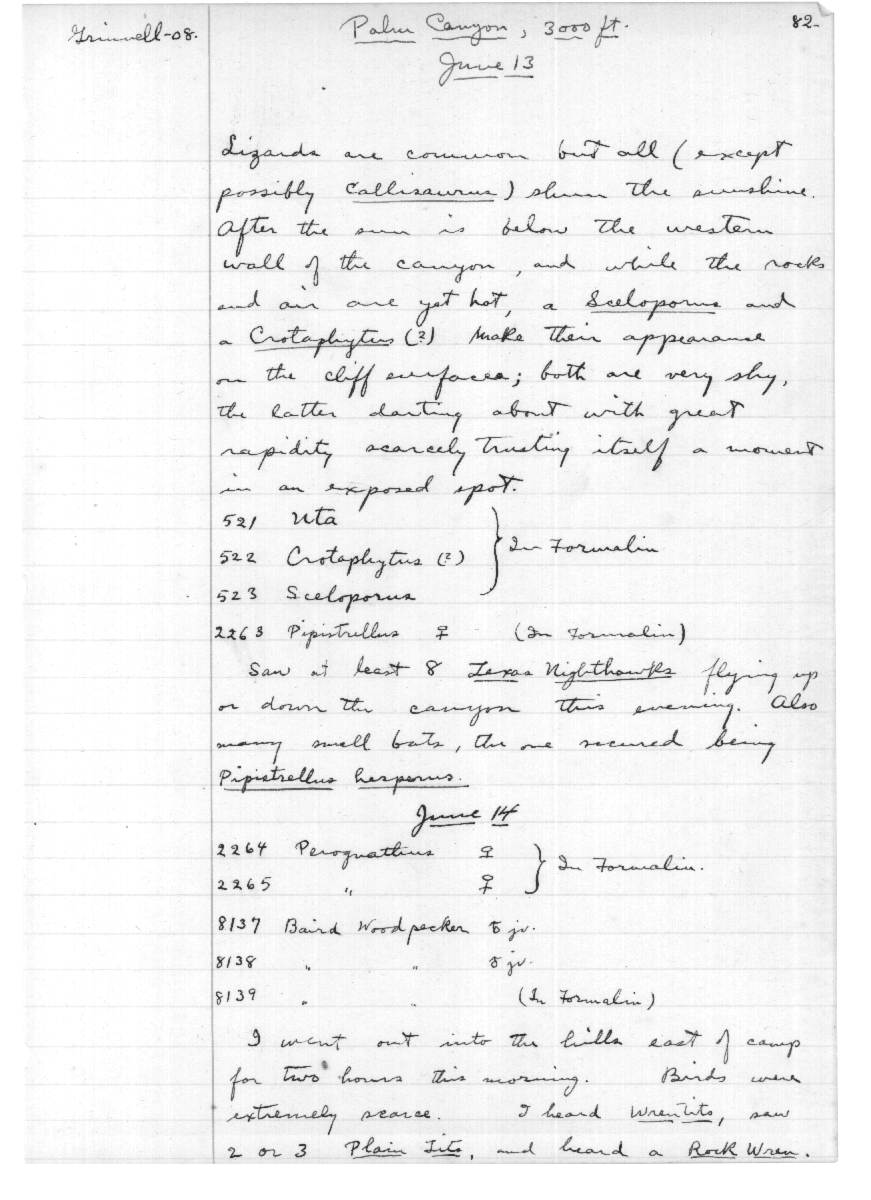 Grinnell-08.
Palm Canyon, 3000 ft.
82-
June 13
Lizards are common but all (except
possibly Callisaurus) shun the sunshine.
After the sun is below the western
wall of the canyon, and while the rocks
and air are yet hot, a Sceloporus and
a Crotaphytus (?) make their appearance
on the cliff surfaces; both are very shy,
the latter darting about with great
rapidity scarcely trusting itself a moment
in an exposed spot.
521 Uta
522 Crotaphytus (?) } In Formalin
523 Sceloporus
2263 Pipistrellus ♀ (In Formalin)
Saw at least 8 Texas Nighthawks flying up
or down the canyon this evening. Also
many small bats, the one secured being
Pipistrellus hesperus.
June 14
2264 Perognathus ♀ } In Formalin.
2265 " ♀
8137 Baird Woodpecker ♂ jv.
8138 " " ♂ jv.
8139 " " (In Formalin)
I went out into the hills east of camp
for two hours this morning. Birds were
extremely scarce. I heard Wrentits, saw
2 or 3 Plain Tits, and heard a Rock Wren.